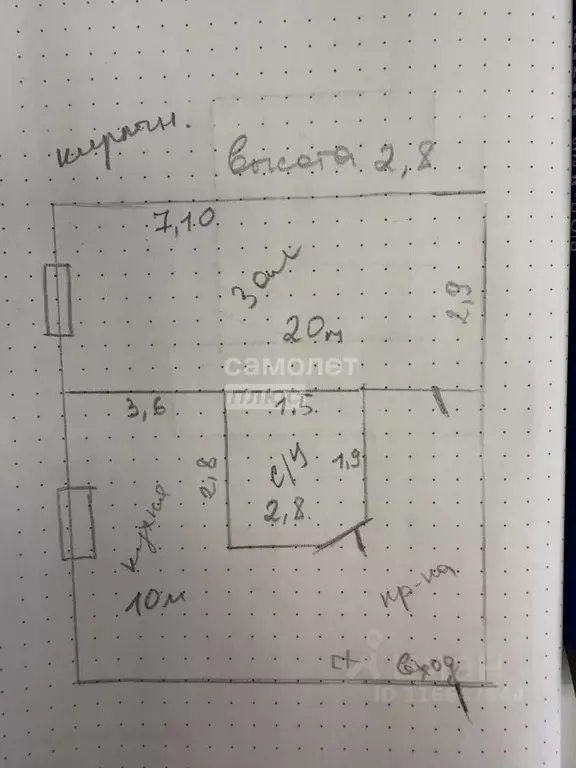 кирпич.
высота 2,8
7,10
Зал
2,9
20м
самолет
плюс
3,6
1,5
2,8
с/у
1,9
2,8
кухня
10м
пр-ка
вход